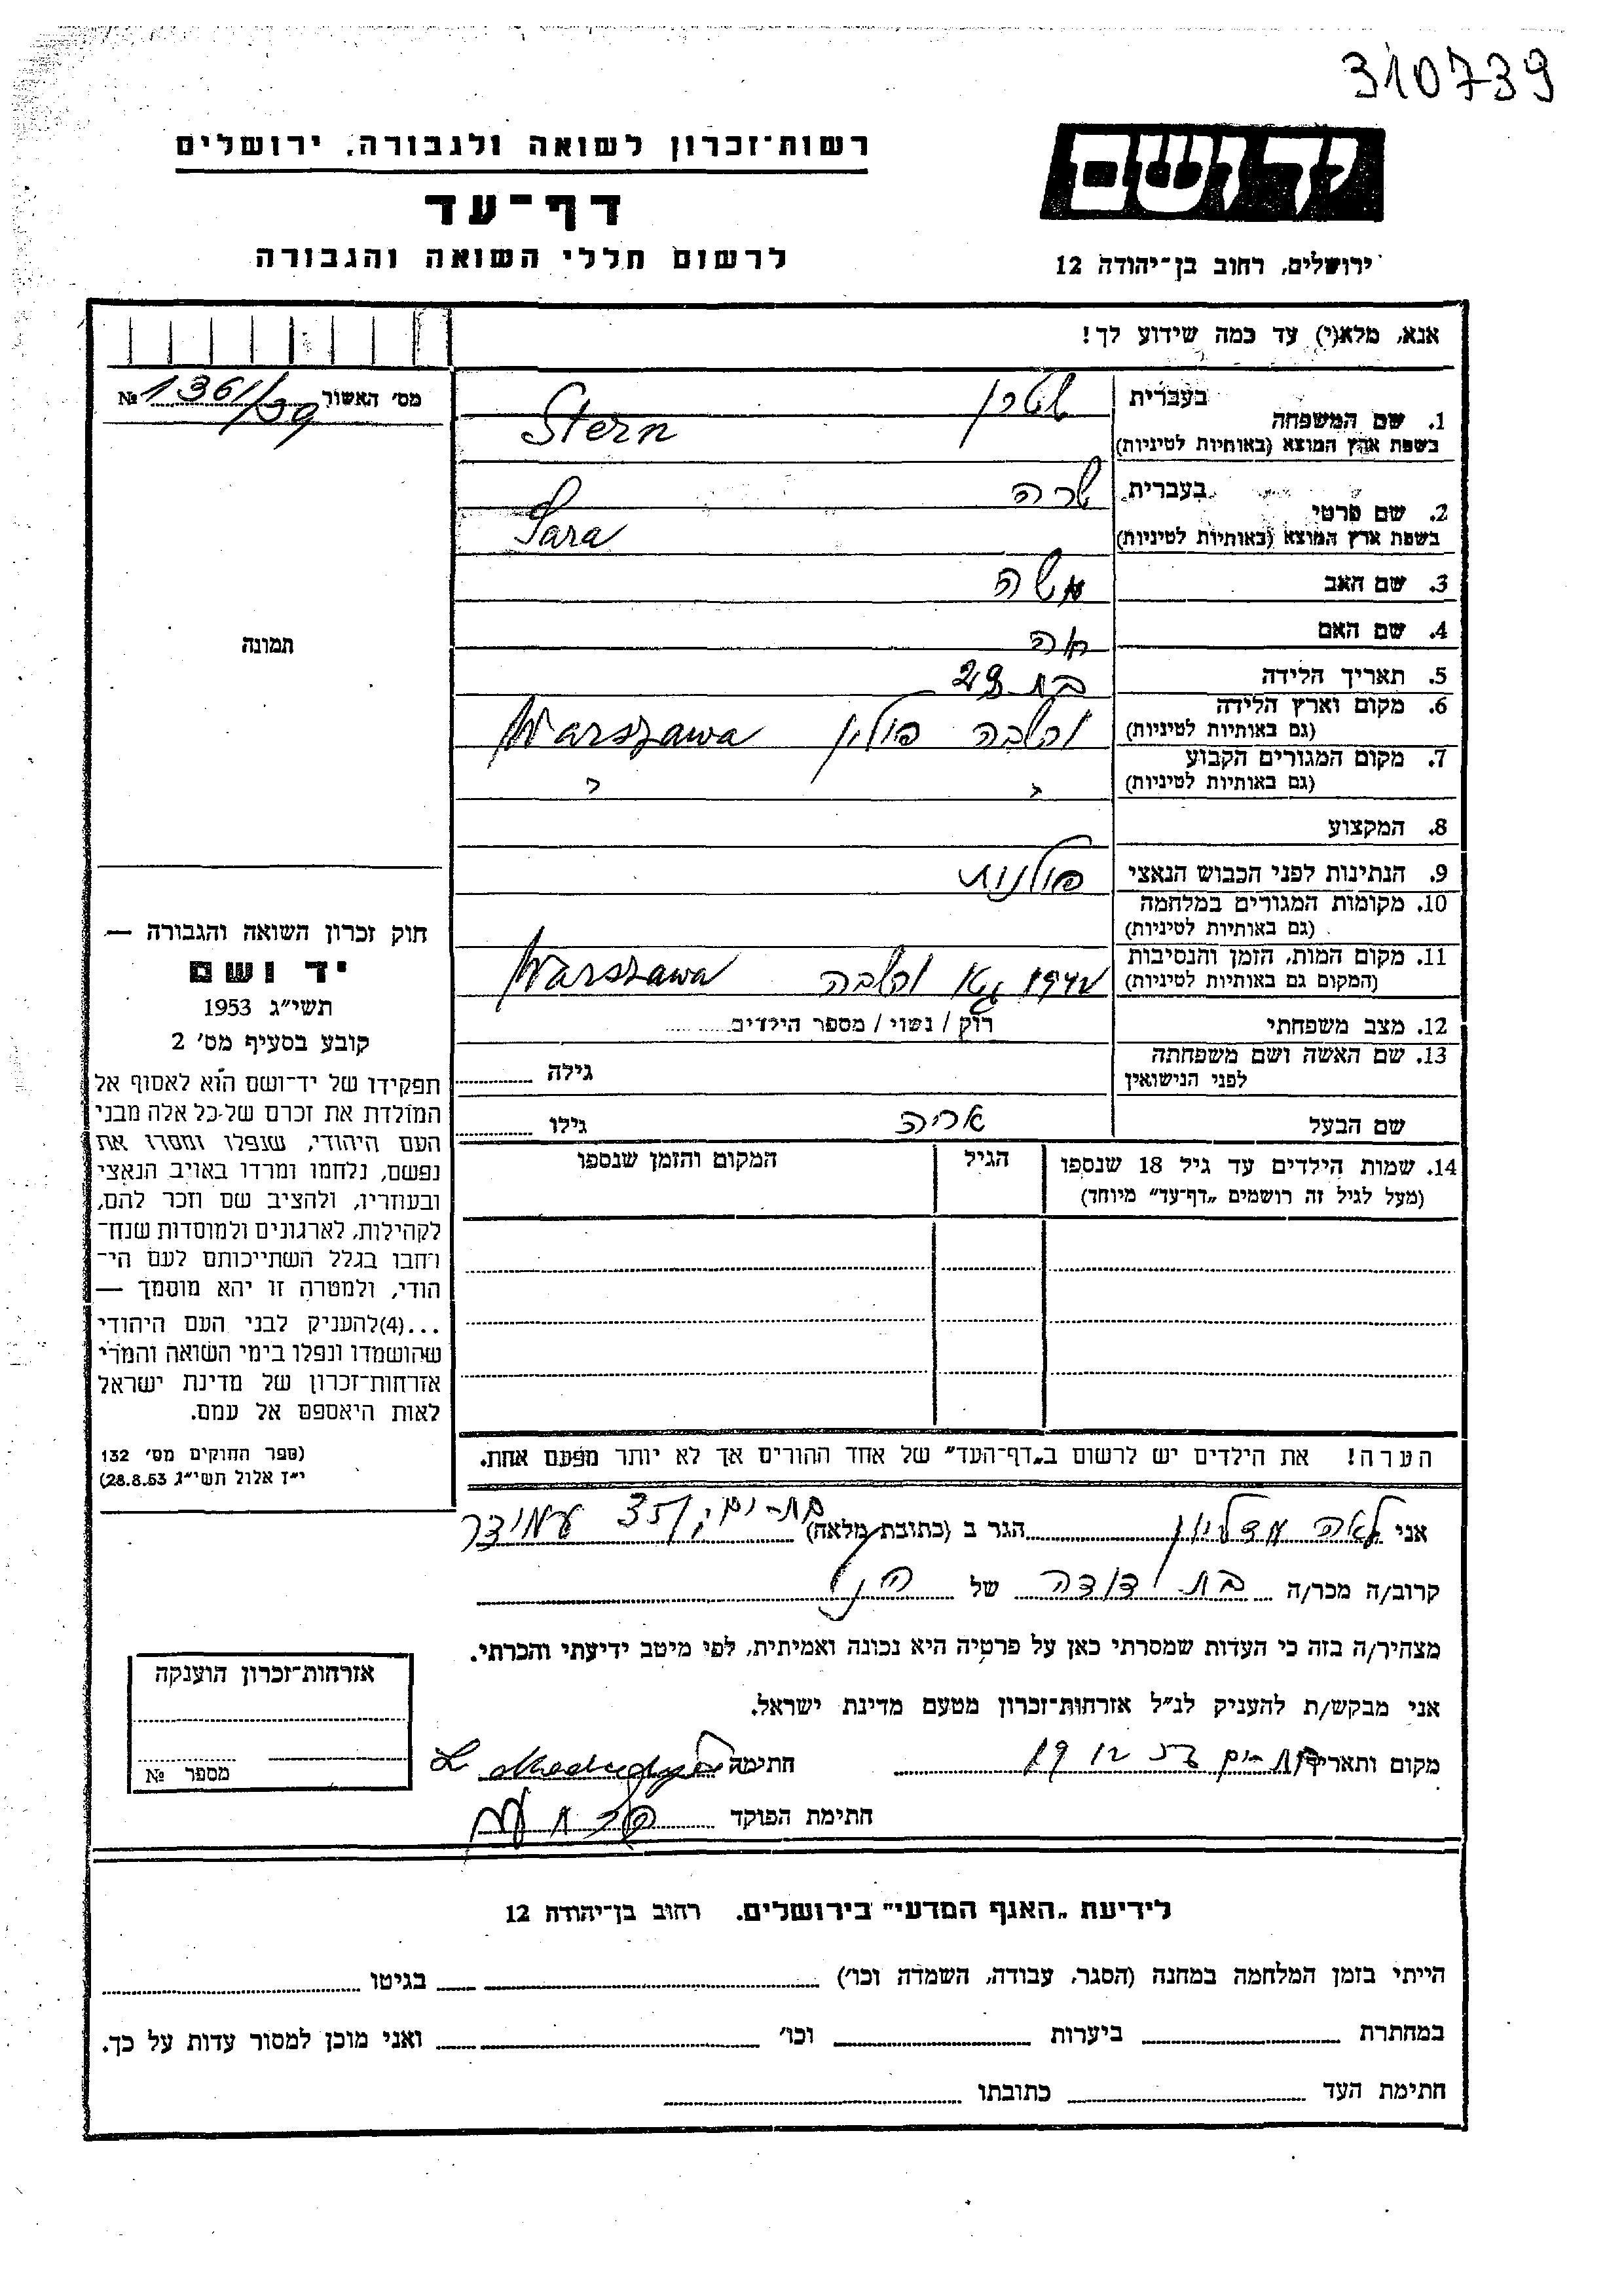 310739
רשות־זכרון לשואה ולגבורה, ירושלים
דף־עד
לרשום חללי השואה והגבורה
ידושם
ירושלים, רחוב בן־יהודה 12
אנא, מלא(י) עד כמה שידוע לך!
מס׳ האשור 1361/39 №
1. שם המשפחה בעברית שטרן
בשפת ארץ המוצא (באותיות לטיניות) Stern
2. שם פרטי בעברית שרה
בשפת ארץ המוצא (באותיות לטיניות) Sara
3. שם האב משה
4. שם האם
5. תאריך הלידה בת
6. מקום וארץ הלידה (גם באותיות לטיניות) ורשבה פולין Warszawa
7. מקום המגורים הקבוע (גם באותיות לטיניות) ? ?
8. המקצוע
9. הנתינות לפני הכבוש הנאצי פולנית
10. מקומות המגורים במלחמה (גם באותיות לטיניות)
11. מקום המות, הזמן והנסיבות (המקום גם באותיות לטיניות) ורשבה Warszawa
12. מצב משפחתי רוק / נשוי / מספר הילדים
13. שם האשה ושם משפחתה לפני הנישואין גילה
שם הבעל אריה גילו
14. שמות הילדים עד גיל 18 שנספו הגיל המקום והזמן שנספו
(מעל לגיל זה רושמים „דף־עד” מיוחד)
תמונה
חוק זכרון השואה והגבורה —
יד ושם
תשי״ג 1953
קובע בסעיף מס׳ 2
תפקידו של יד־ושם הוא לאסוף אל
המולדת את זכרם של כל אלה מבני
העם היהודי, שנפלו ומסרו את
נפשם, נלחמו ומרדו באויב הנאצי
ובעוזריו, ולהציב שם וזכר להם,
לקהילות, לארגונים ולמוסדות שנח־
רחבו בגלל השתייכותם לעם הי־
הודי, ולמטרה זו יהא מוסמך —
...(4)להעניק לבני העם היהודי
שהושמדו ונפלו בימי השואה והמרי
אזרחות־זכרון של מדינת ישראל
לאות היאספם אל עמם.
(ספר החוקים מס׳ 132
י״ז אלול תשי״ג 28.8.53)
הערה! את הילדים יש לרשום ב„דף־העד” של אחד ההורים אך לא יותר מפעם אחת.
אני לאה הגר ב (כתובת מלאה) בת-ים, עמידר
קרוב/ה מכר/ה בת דודה של
מצהיר/ה בזה כי העדות שמסרתי כאן על פרטיה היא נכונה ואמיתית, לפי מיטב ידיעתי והכרתי.
אני מבקש/ת להעניק לנ״ל אזרחות־זכרון מטעם מדינת ישראל.
מקום ותאריך בת-ים חתימה
חתימת הפוקד
אזרחות־זכרון הוענקה
מספר №
לידיעת „האגף המדעי” בירושלים, רחוב בן־יהודה 12
הייתי בזמן המלחמה במחנה (הסגר, עבודה, השמדה וכו׳) בגיטו
במחתרת ביערות וכו׳ ואני מוכן למסור עדות על כך.
חתימת העד כתובתו